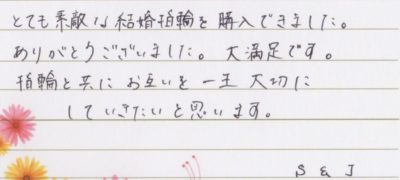 とても素敵な結婚指輪を購入できました。
ありがとうございました。大満足です。
指輪と共にお互いを一生大切に
していきたいと思います。
S & J